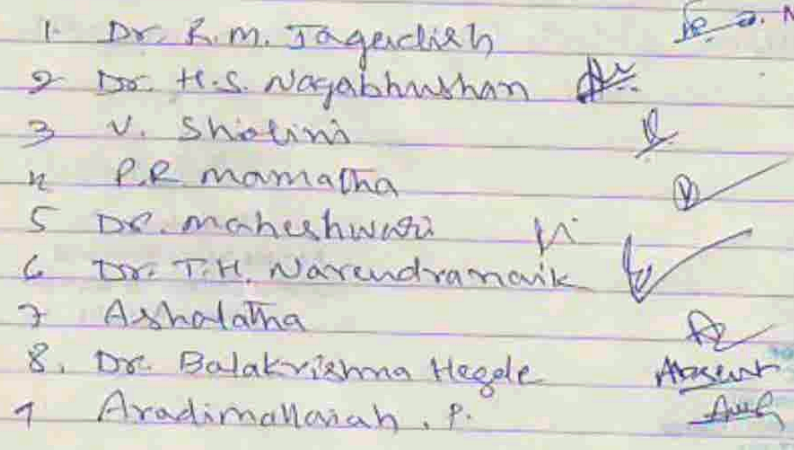 1. Dr. R.M. Jagadish
2 Dr. H.S. Nagabhushan
3 V. Shalini
4 P.R mamatha
5 Dr. maheshwari
6 Dr. T.H. Narendranaik
7 Ashalatha
8. Dr. Balakrishna Hegde Absent
9 Aradimallaiah . P.